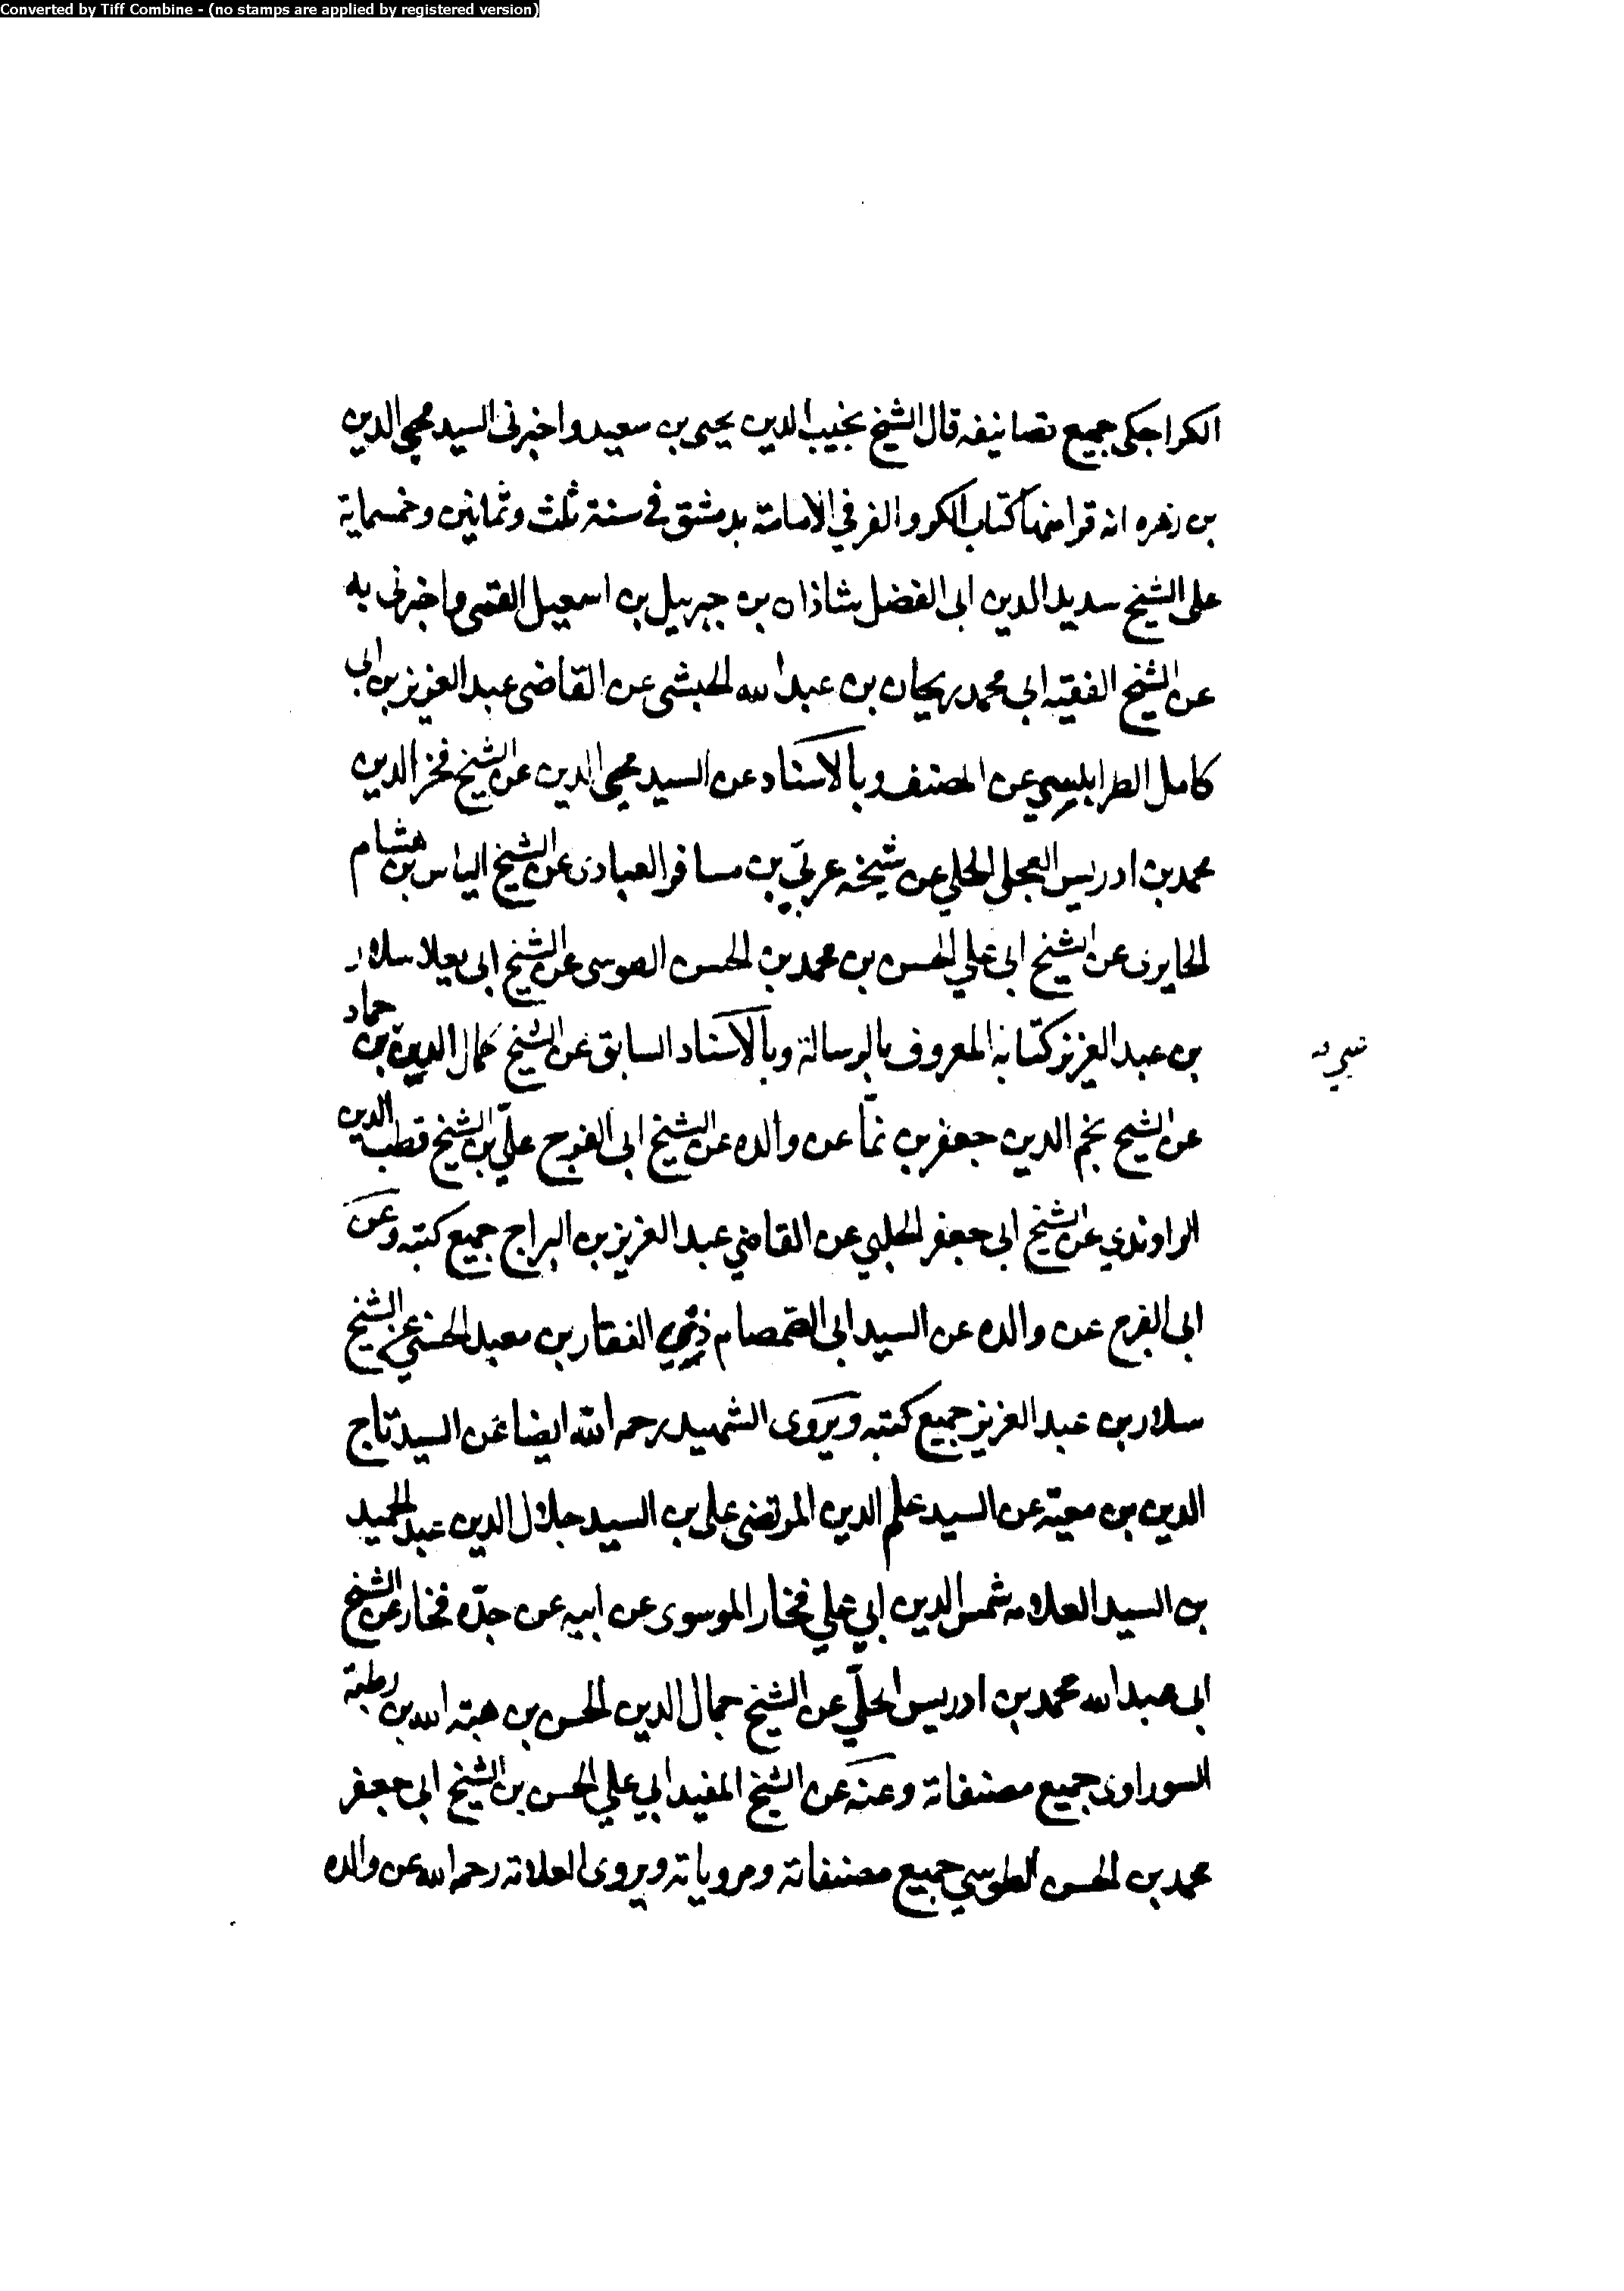 Converted by Tiff Combine - (no stamps are applied by registered version)
الكراجكى جميع تصانيفه قال الشيخ نجيب الدين يحيى بن سعيد واخبرنى السيد محيى الدين
بن زهره انه قرا منها كتاب الكر والفر فى الامامة بدمشق فى سنة ثلث وثمانين وخمسماية
على الشيخ سديد الدين ابى الفضل شاذان بن جبرييل بن اسمعيل القمى واخبرنى به
عن الشيخ الفقيه ابى محمد ريحان بن عبد الله الحبشى عن القاضى عبد العزيز بن ابى
كامل الطرابلسي عن المصنف وبالاسناد عن السيد محيى الدين عن الشيخ فخر الدين
محمد بن ادريس العجلى الحلي عن شيخه عربي بن مسافر العبادى عن الشيخ الياس بن هشام
الحايرى عن الشيخ ابى علي الحسن بن محمد بن الحسن الموسى عن الشيخ ابى يعلا سلار
بن عبد العزيز كتابه المعروف بالرسالة وبالاسناد السابق عن الشيخ كمال الدين بن حماد
عن الشيخ نجم الدين جعفر بن نما عن والده عن الشيخ ابى الفرج علي بن الشيخ قطب الدين
الراوندي عن الشيخ ابى جعفر الحلبي عن القاضي عبد العزيز بن البراج جميع كتبه وعن
ابى الفرج عن والده عن السيد ابى الصمصام ذي الفقار بن معبد الحسنى عن الشيخ
سلار بن عبد العزيز جميع كتبه ويروى الشهيد رحمه الله ايضا عن السيد تاج
الدين بن معية عن السيد علم الدين المرتضى على بن السيد جلال الدين عبد الحميد
بن السيد العلامه شمس الدين ابي علي فخار الموسوى عن ابيه عن جده فخار عن الشيخ
ابى عبد الله محمد بن ادريس الحلي عن الشيخ جمال الدين الحسن بن هبة الله بن رطبة
السوراوى جميع مصنفاته وعنه عن الشيخ المفيد ابي علي الحسن بن الشيخ ابى جعفر
محمد بن الحسن الطوسي جميع مصنفاته ومروياته ويروى العلامة رحمه الله عن والده